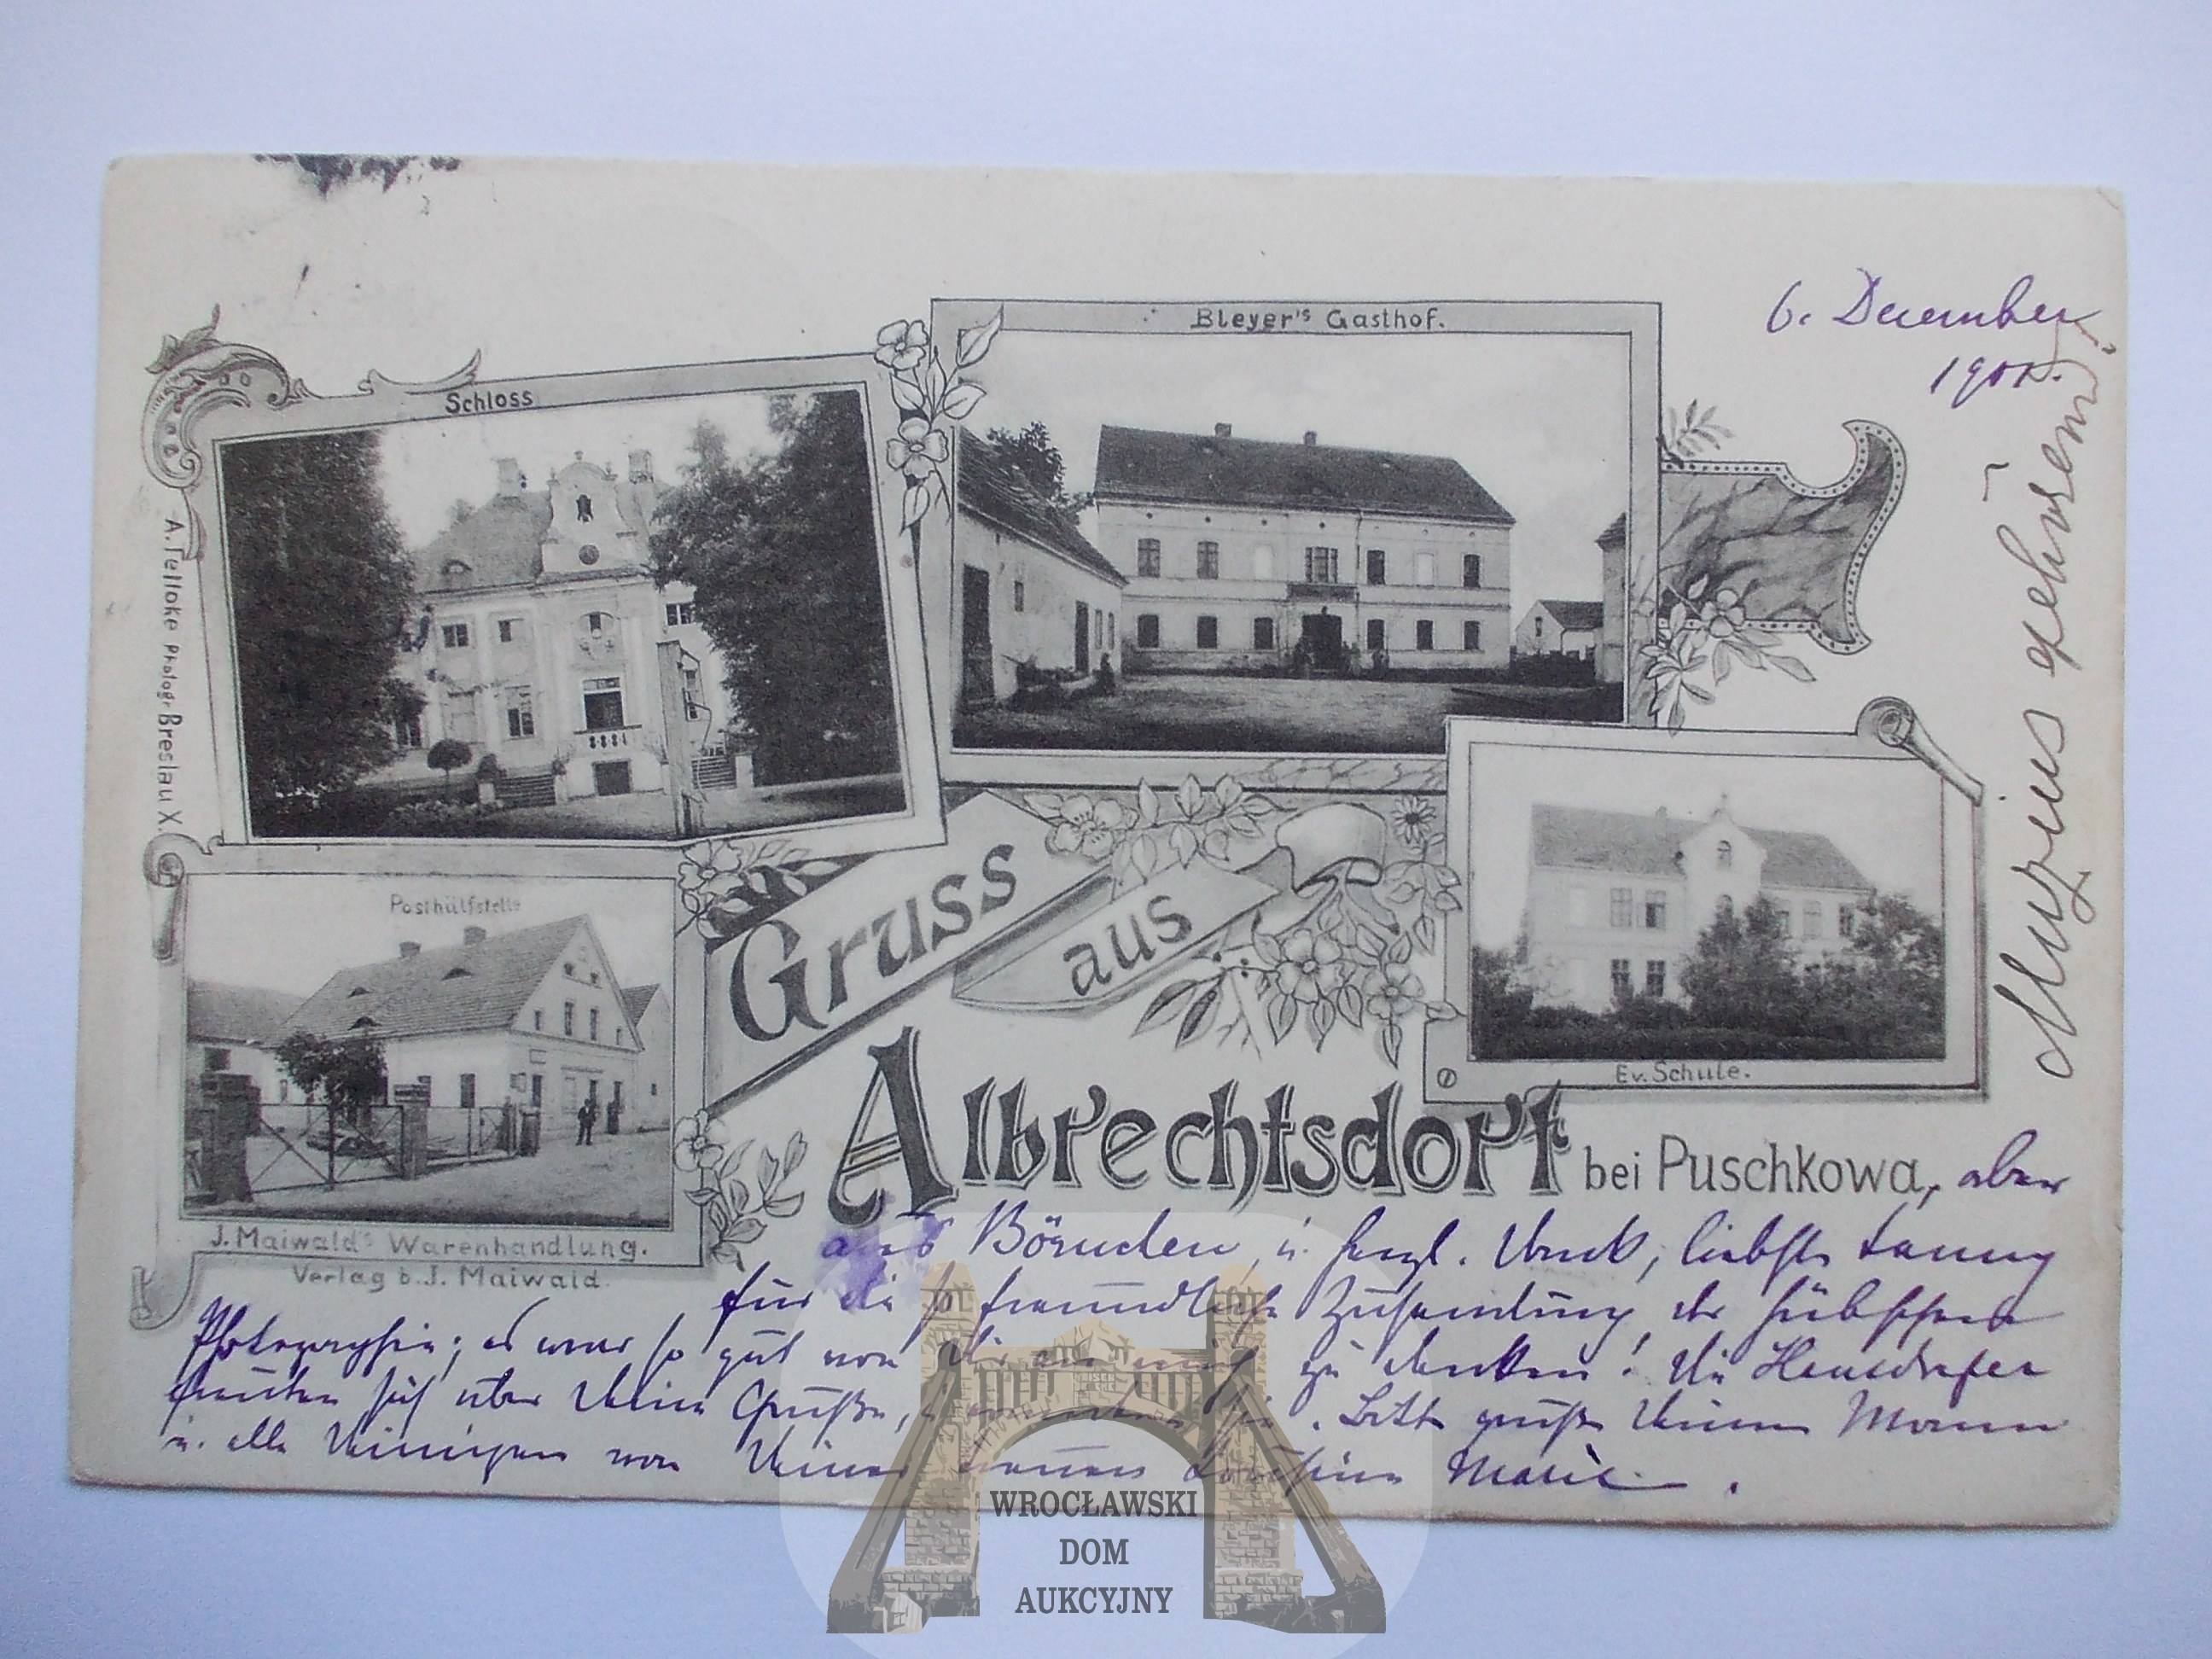 6. December
1901.
Bleyer's Gasthof.
Schloss
A. Telloke Photogr. Breslau X.
Posthülfstelle
Gruss
aus
Ev. Schule.
Albrechtsdorf bei Puschkowa, aber
J. Maiwald's Warenhandlung.
Verlag b. J. Maiwald.
aus u. herzl. Dank, liebste Fanny
für die so freundliche Zusendung der hübschen
Photographie; es war so gut von Dir an mich zu denken! Die
freuten sich über Deine Grüße, Bitte grüße Deinen Mann
u. alle Deinigen von Deiner Cousine Marie.
gehörend!
WROCŁAWSKI
DOM
AUKCYJNY